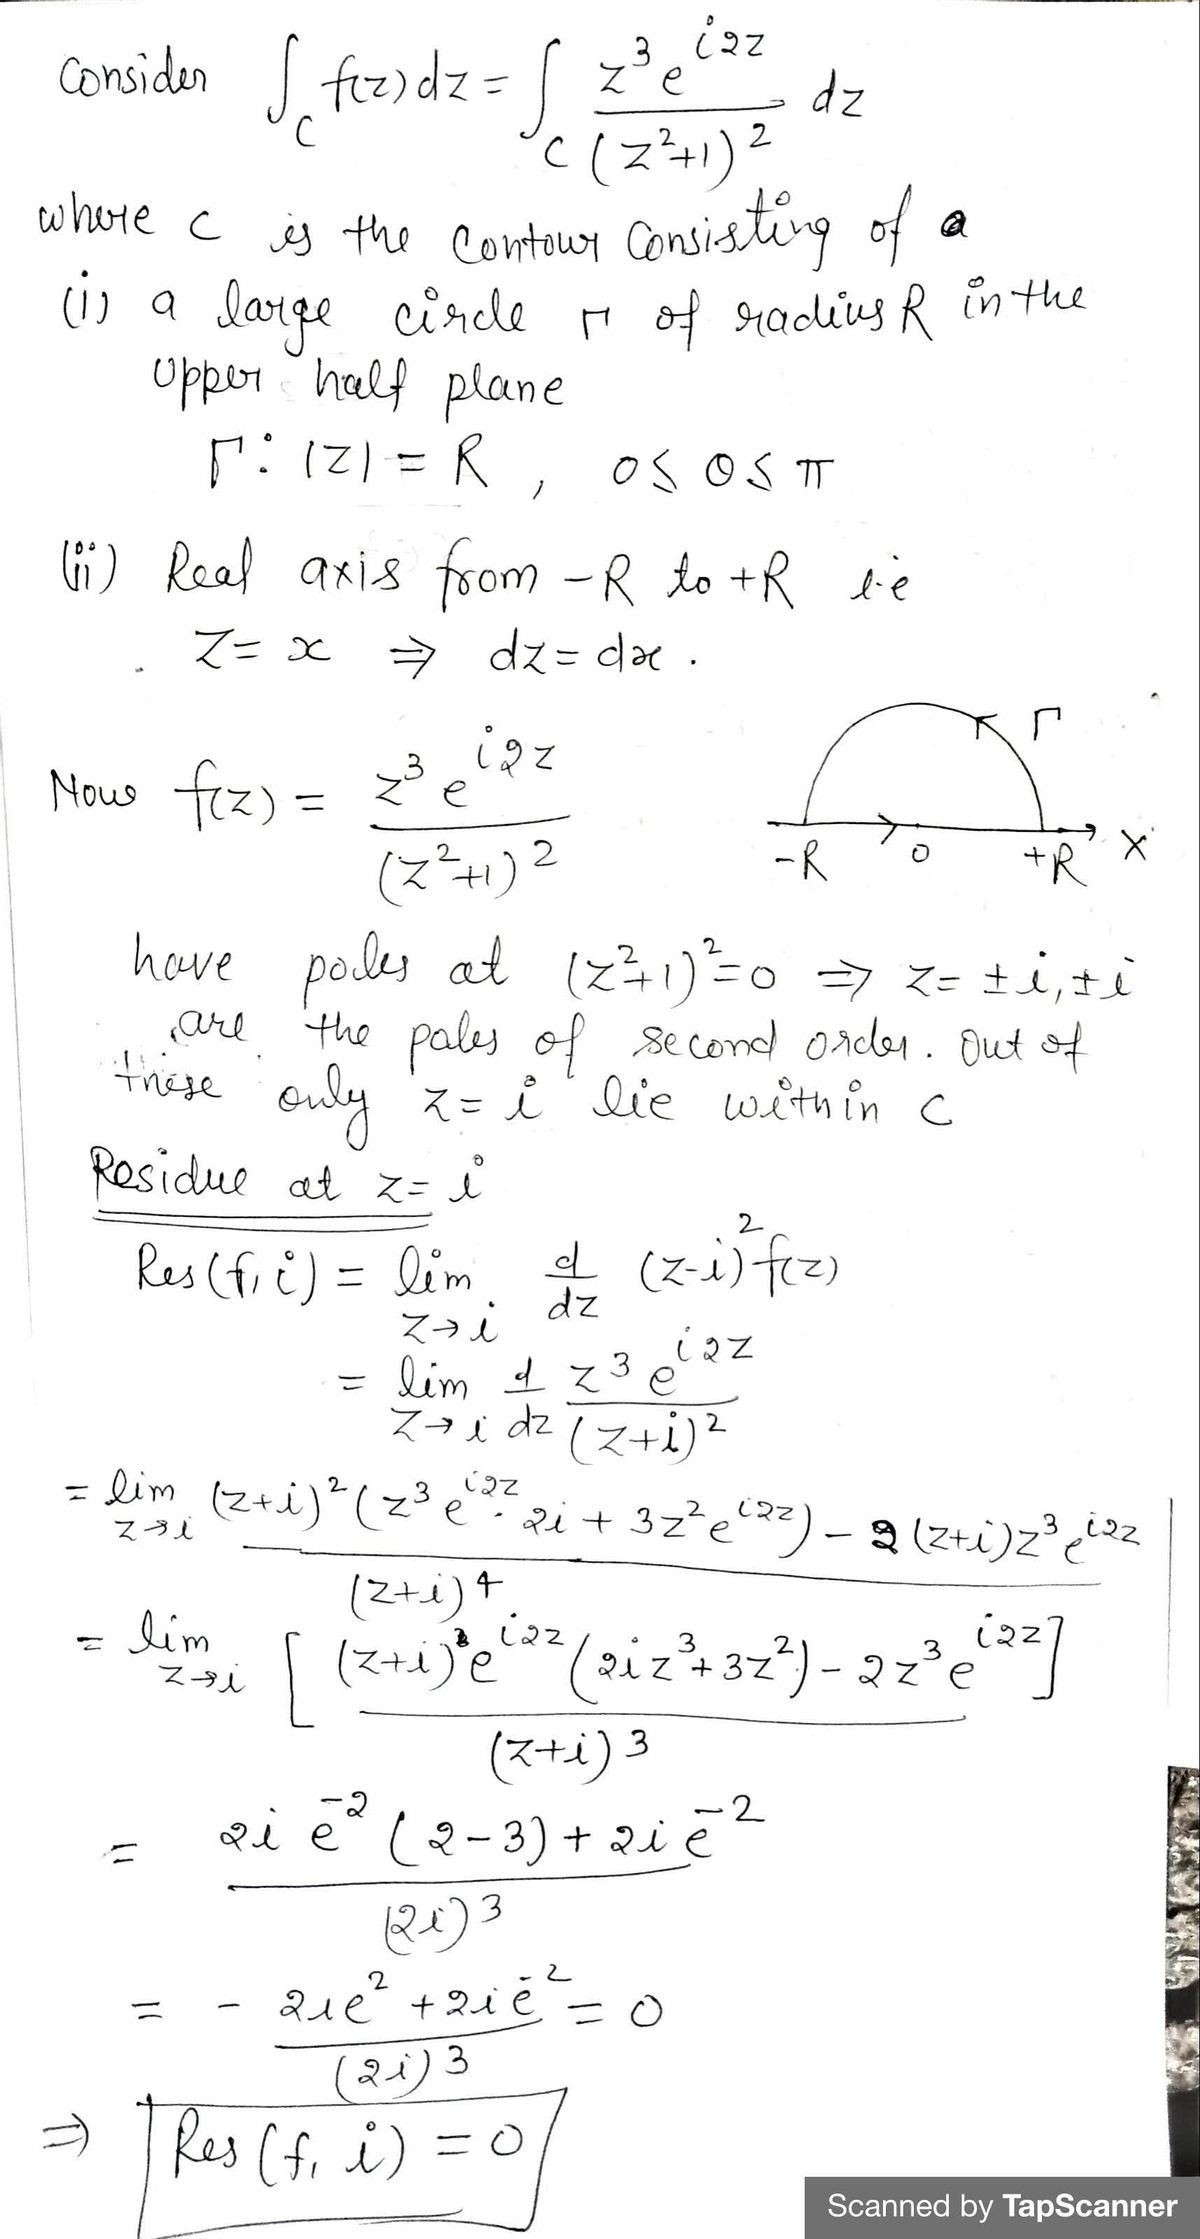 Consider ∫_C f(z) dz = ∫_C z³ e^{i2z} / (z²+1)² dz
where C is the contour consisting of a
(i) a large circle Γ of radius R in the
upper half plane
Γ: |z| = R , 0 ≤ θ ≤ π
(ii) Real axis from -R to +R i.e
z = x ⇒ dz = dx .
Now f(z) = z³ e^{i2z} / (z²+1)²
Γ
-R 0 +R X
have poles at (z²+1)² = 0 ⇒ z = ±i, ±i
are the poles of second order. Out of
these only z = i lie within C
Residue at z = i
Res(f, i) = lim_{z→i} d/dz (z-i)² f(z)
= lim_{z→i} d/dz z³ e^{i2z} / (z+i)²
= lim_{z→i} (z+i)² (z³ e^{i2z} · 2i + 3z² e^{i2z}) - 2(z+i) z³ e^{i2z} / (z+i)⁴
= lim_{z→i} [ (z+i) e^{i2z} (2iz³ + 3z²) - 2z³ e^{i2z} ] / (z+i)³
= 2i e^{-2} (2-3) + 2i e^{-2} / (2i)³
= - 2i e² + 2i e^{-2} / (2i)³ = 0
⇒ Res(f, i) = 0
Scanned by TapScanner